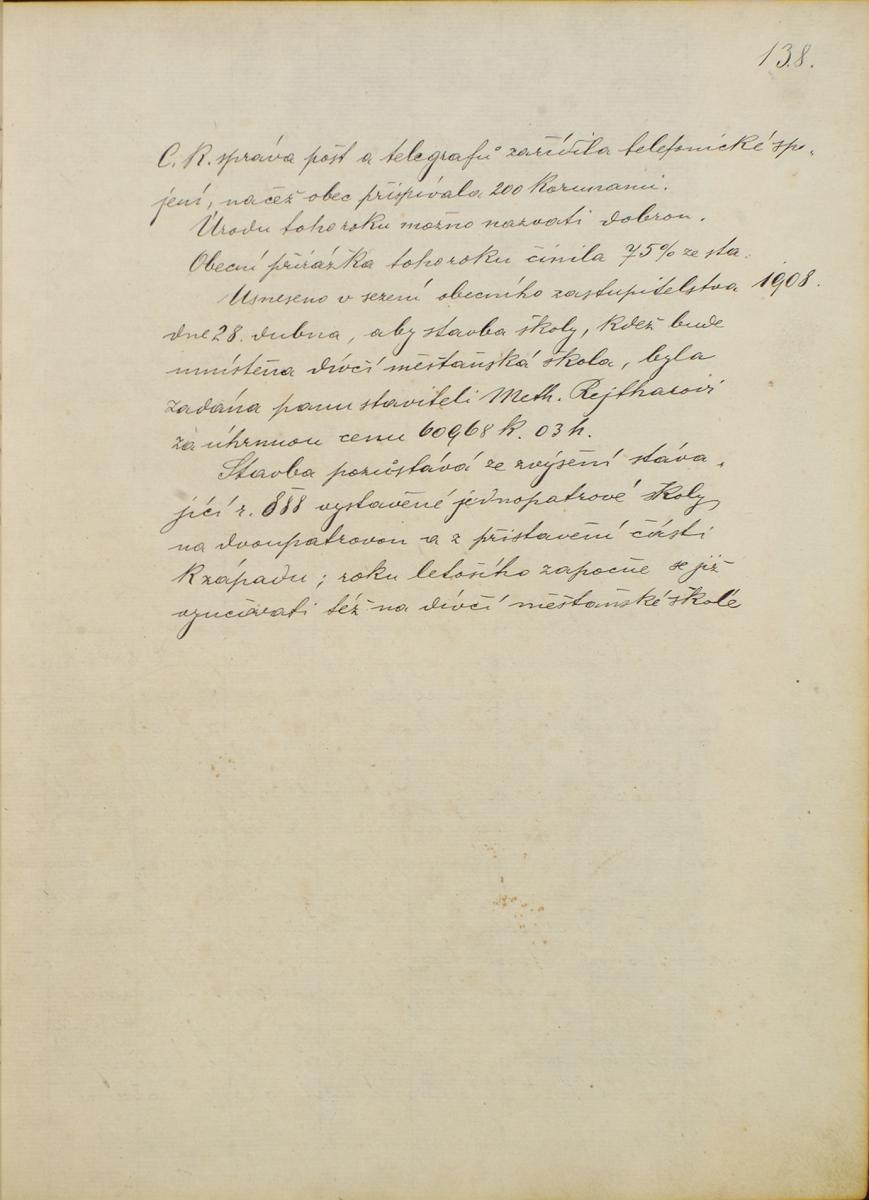 138.
C. K. správa pošt a telegrafů zařídila telefonické spo-
jení, načež obec přispívala 200 korunami.
Úrodu toho roku možno nazvati dobrou.
Obecní přirážka toho roku činila 75% ze sta.
Usneseno v sezení obecního zastupitelstva 1908.
dne 28. dubna, aby stavba školy, kdež bude
umístěna dívčí měšťanská škola, byla
zadána panu staviteli Meth. Rejtharovi
za úhrnnou cenu 60968 k. 03 h.
Stavba pozůstává ze zvýšení stáva-
jící r. 888 vystavěné jednopatrové školy
na dvoupatrovou a z přistavení části
k západu; roku letošího započne se již
vyučovati též na dívčí měšťanské škole